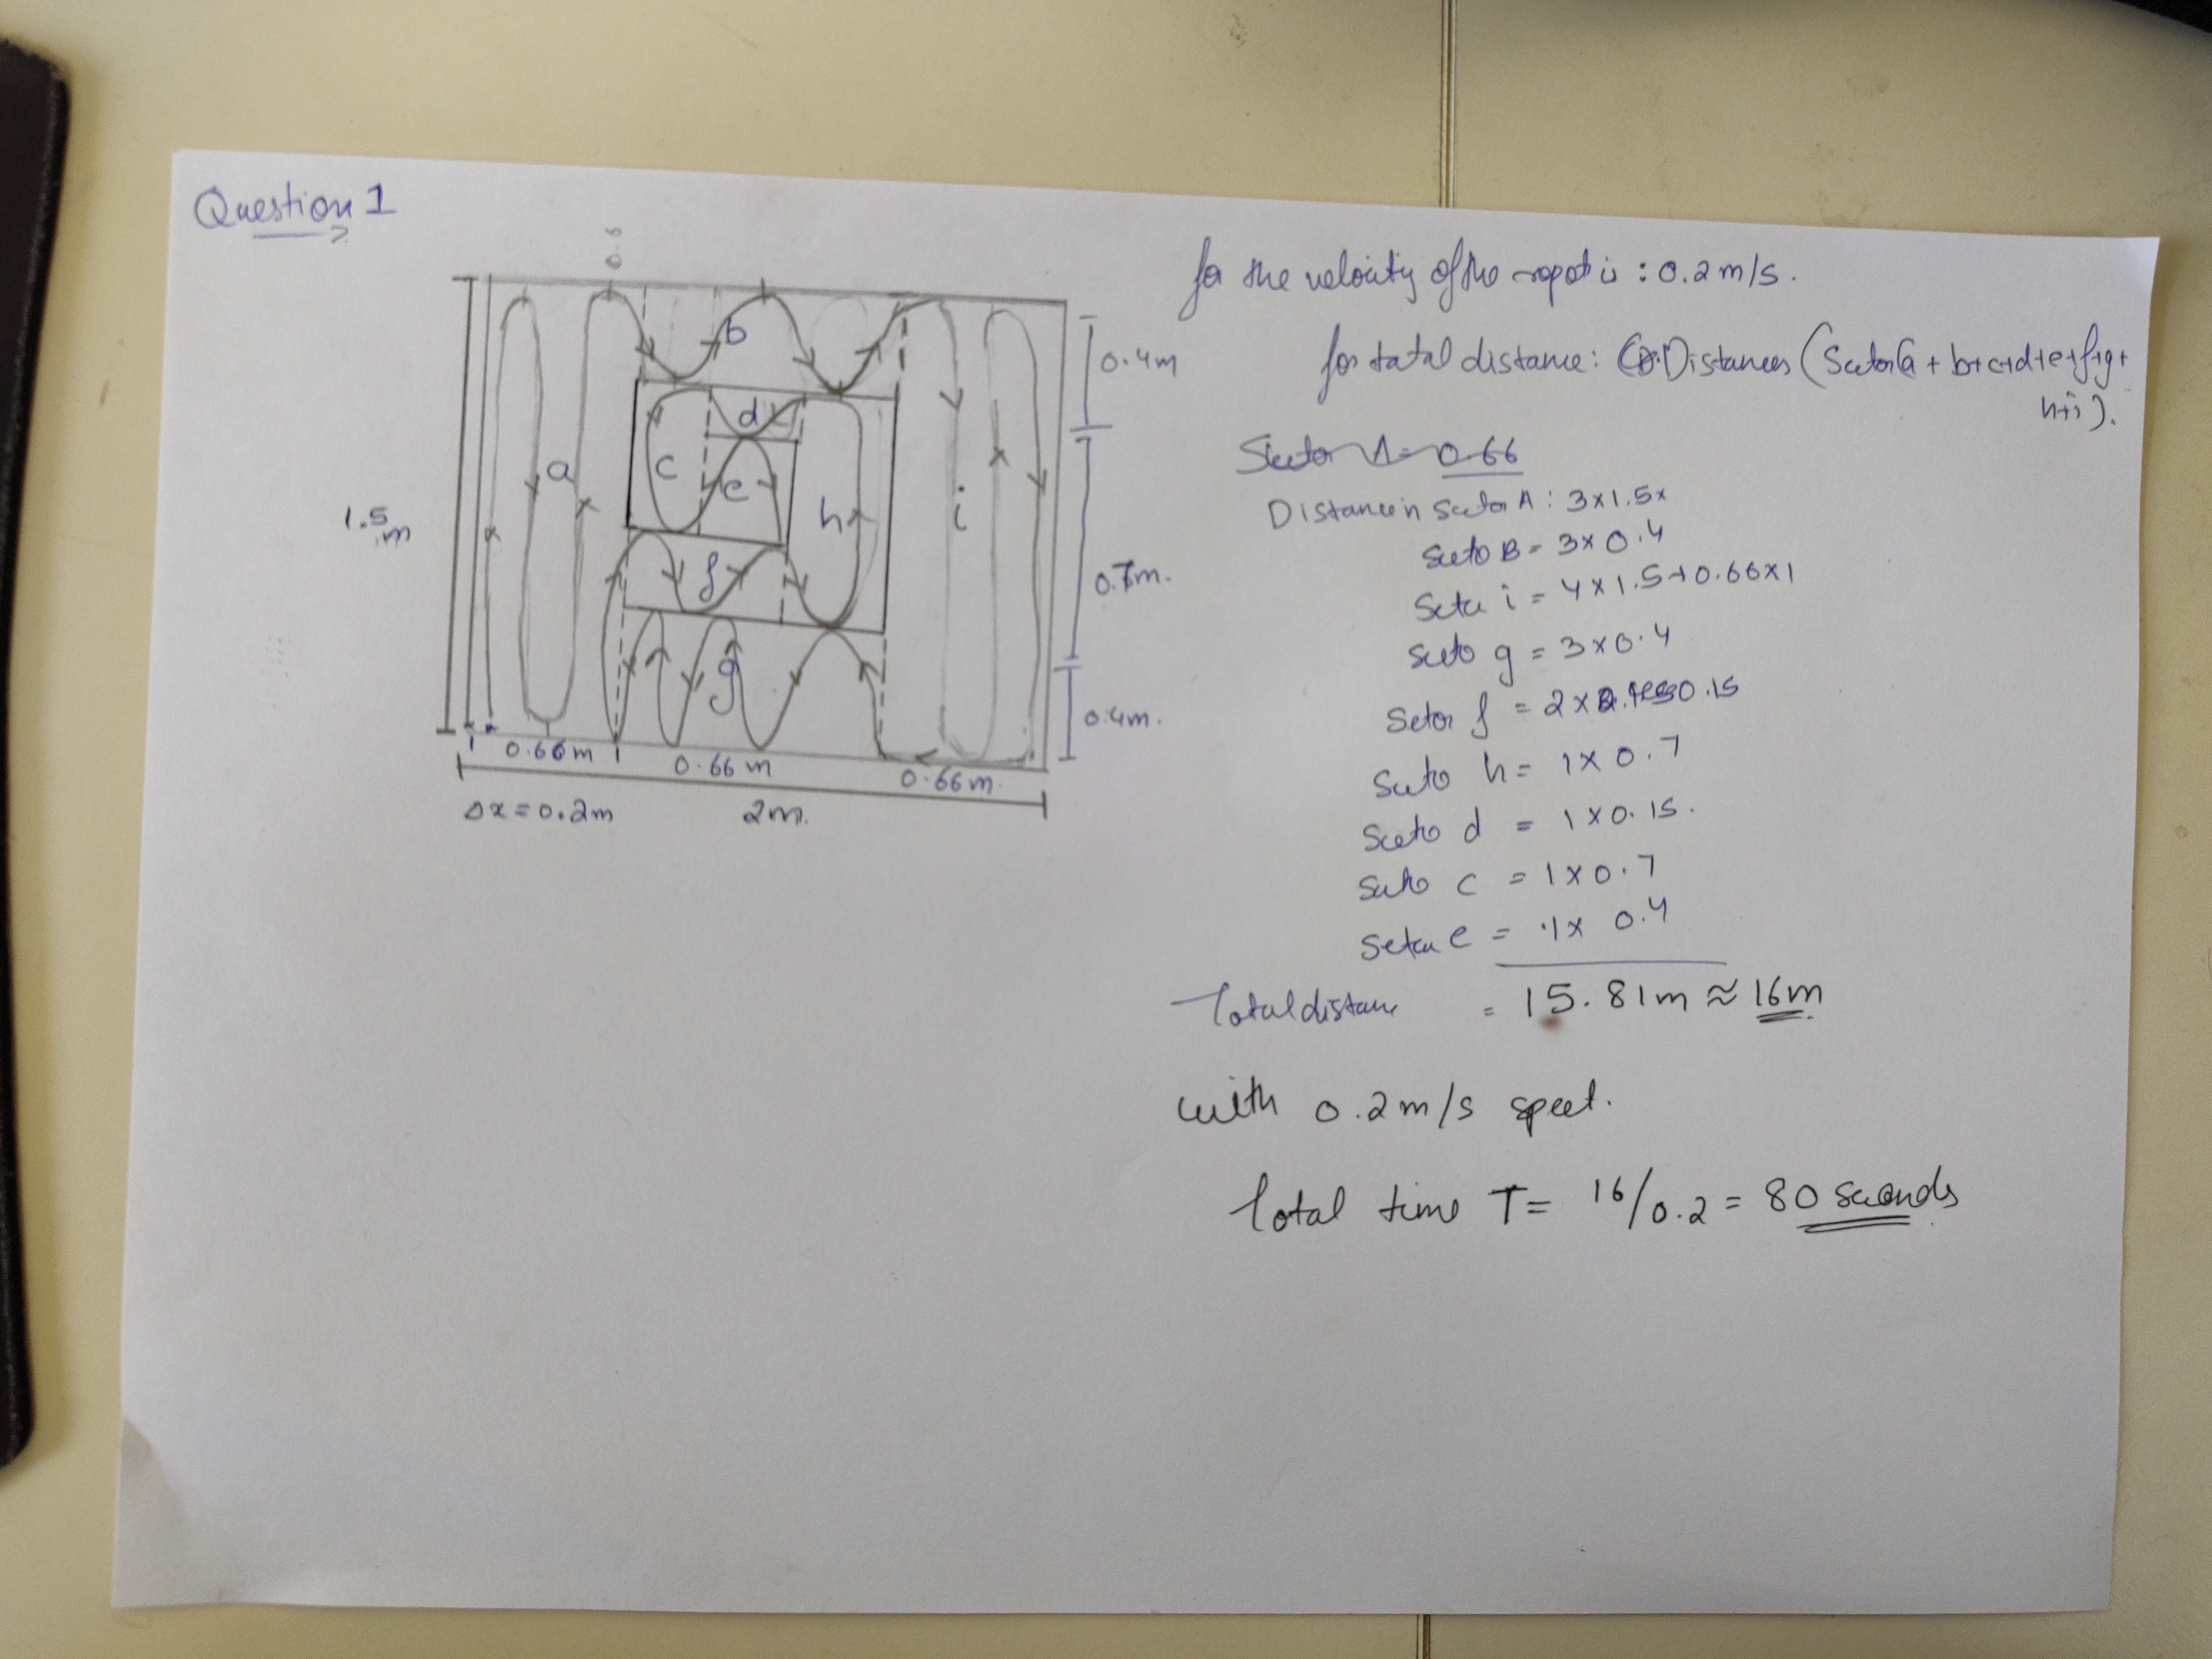 Question 1
0.6
b
d
a
c
e
h
i
f
g
1.5
m
0.4m
0.7m.
0.4m.
0.66m
0.66m
0.66m.
Δx=0.2m
2m.
for the velocity of the ropot is : 0.2m/s.
for tatal distance: Distances (Sector a + b+c+d+e+f+g+
h+i).
Sector A = 0.66
Distance in Sector A : 3x1.5x
Secto B = 3x0.4
Secto i = 4x1.5+0.66x1
Secto g = 3x0.4
Setor f = 2x 0.15
Secto h = 1x0.7
Secto d = 1x0.15.
Secto c = 1x0.7
Setor e = 1x 0.4
Total distan = 15.81m ≈ 16m
with 0.2m/s speet.
Total time T= 16/0.2 = 80 seconds